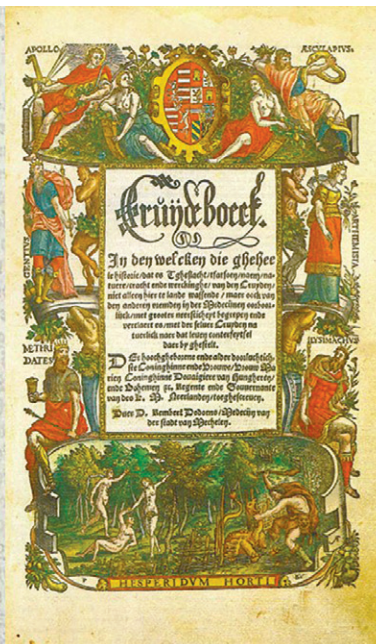 APOLLO
ÆSCVLAPIVS.
Crŭijdeboeck.
In den welcken die ghehee
le historie / dat es Tgheslacht / tfatsoen / naem / na-
tuere / cracht ende werckinghe / van den Cruyden /
niet alleen hier te lande wassende / maer oock van
den anderen vremden in der Medecijnen oorboor-
lijck / met grooter neersticheyt begrepen ende
verclaert es / met der seluer Cruyden na
tuerlick naer dat leuen conterfeytsel
daer by ghestelt.
Der hoochgheborene ende alder doorluchtich-
ste Coninghinne ende Vrouwe / Vrouw Ma
rien Coninghinne Douaigiere van Hungheren /
ende Bohemen &c. Regente ende Gouuernante
van des K. M. Neerlanden / toeghescreuen.
Duer D. Rembert Dodoens / Medecijn van
der stadt van Mechelen.
GENTIVS
ARTHEMISIA
METHRI
DATES
LYSIMACHVS
HESPERIDVM HORTI